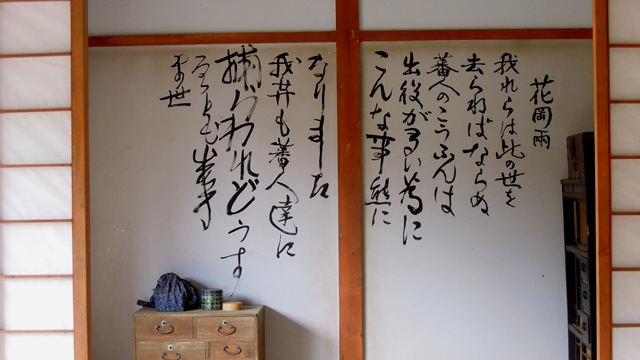 花岡雨
我れらは此の世を
去らねばならぬ
蕃人のこうふんは
出役が多い為に
こんな事態に
なりました
我井も蕃人達に
捕われどうす
ことも出来
ま世